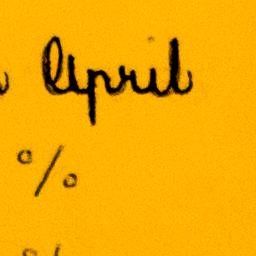 April
%